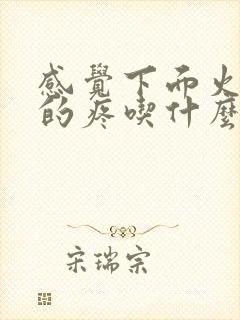 感覺下而火
的疼喫什麼
宋瑞宗